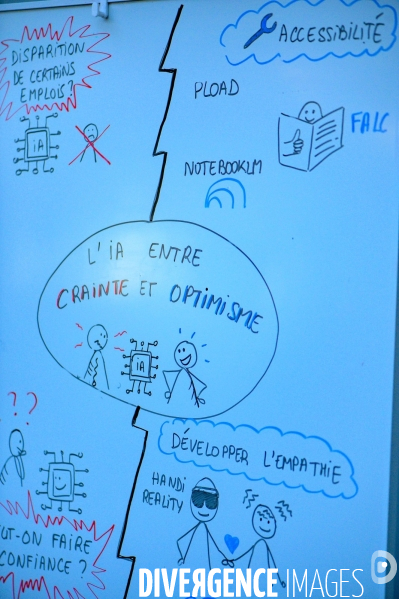 DISPARITION
DE CERTAINS
EMPLOIS?
iA
ACCESSIBILITÉ
PLOAD
FALC
NOTEBOOKLM
L'iA ENTRE
CRAINTE ET OPTIMISME
iA
??
UT-ON FAIRE
CONFIANCE?
DÉVELOPPER L'EMPATHIE
HANDI
REALITY
DIVERGENCE IMAGES